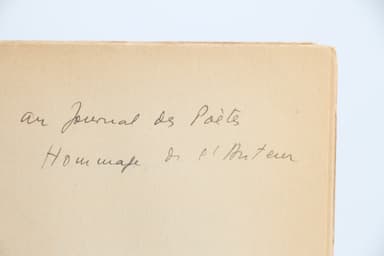 au Journal des Poètes
Hommage de l'Auteur